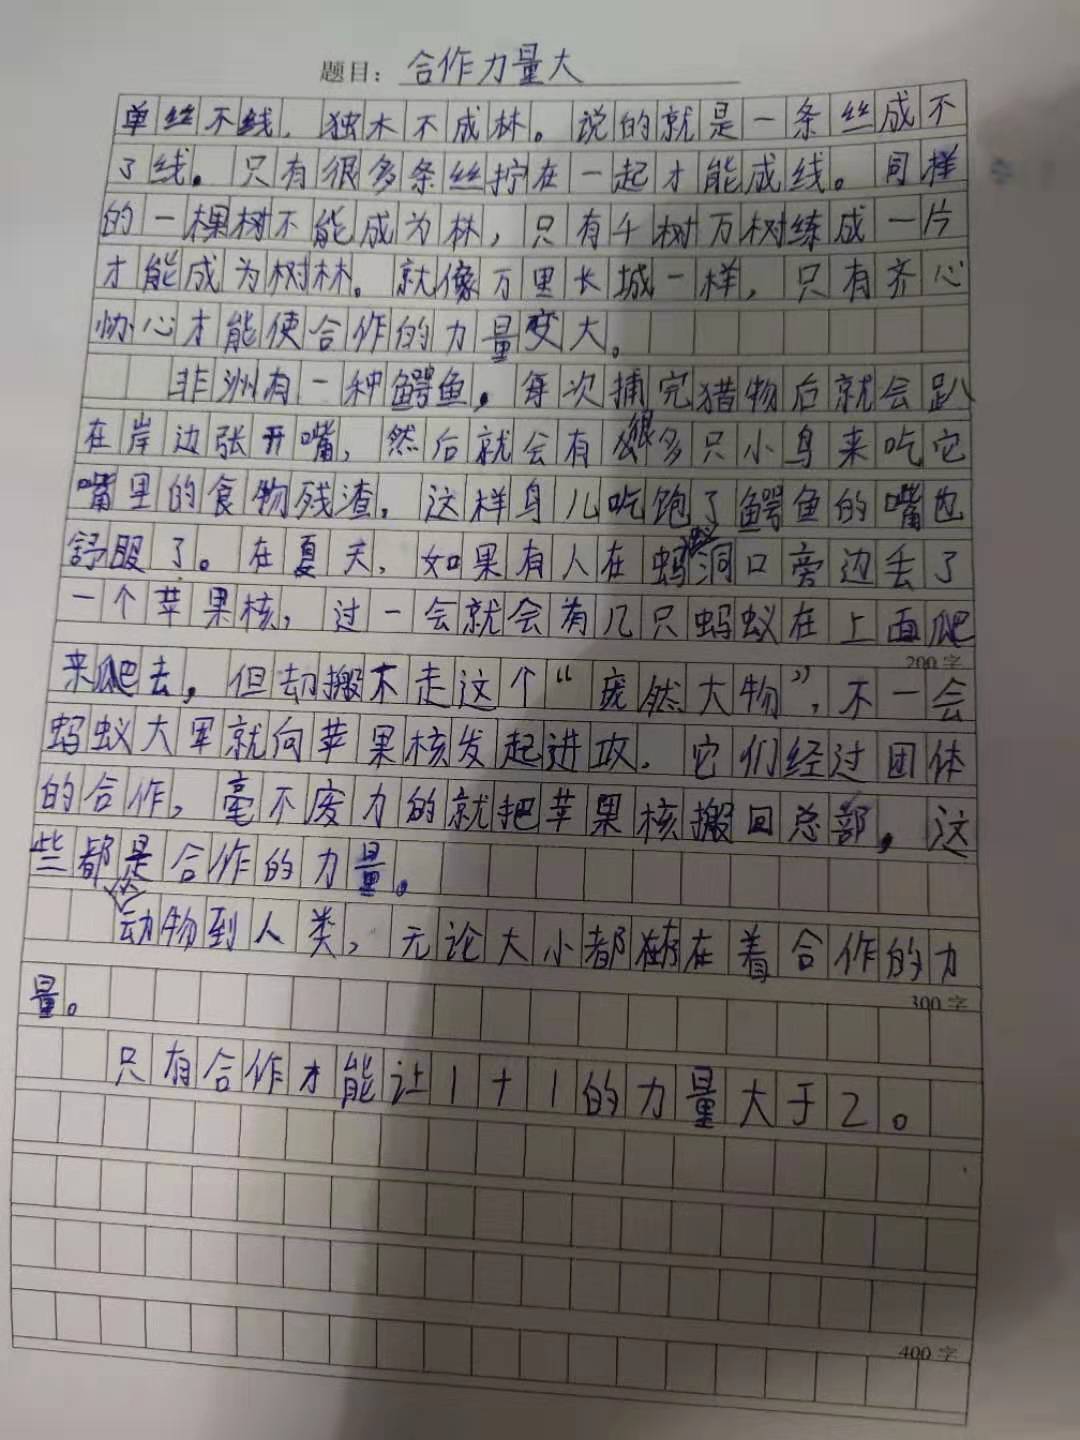 题目：合作力量大
单丝不线，独木不成林。说的就是一条丝成不
了线。只有很多条丝拧在一起才能成线。同样
的一棵树不能成为林，只有千树万树练成一片
才能成为树林。就像万里长城一样，只有齐心
协心才能使合作的力量变大。
非洲有一种鳄鱼，每次捕完猎物后就会趴
在岸边张开嘴，然后就会有很多只小鸟来吃它
嘴里的食物残渣，这样鸟儿吃饱了鳄鱼的嘴也
舒服了。在夏天，如果有人在蚂蚁洞口旁边丢了
一个苹果核，过一会就会有几只蚂蚁在上面爬
200字
来爬去，但却搬不走这个“庞然大物”，不一会
蚂蚁大军就向苹果核发起进攻，它们经过团体
的合作，毫不废力的就把苹果核搬回总部，这
些都是合作的力量。
从动物到人类，无论大小都存在着合作的力
300字
量。
只有合作才能让1+1的力量大于2。
400字